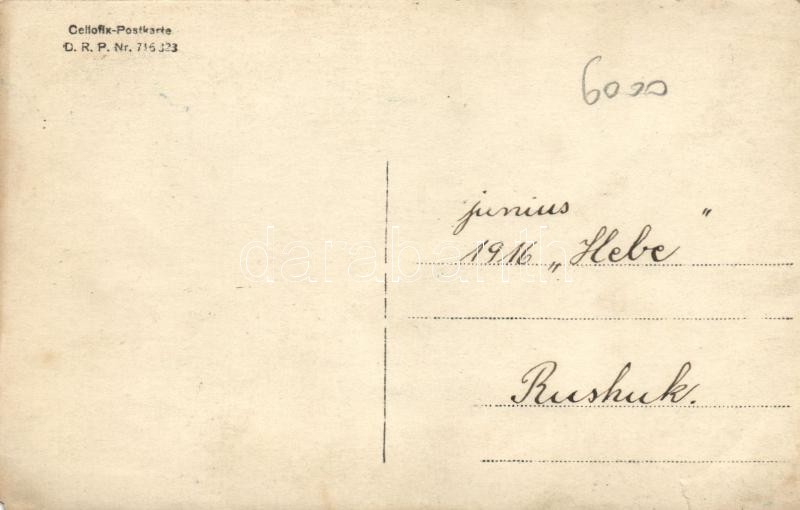 Cellofix-Postkarte
D. R. P. Nr. 716323
6000
junius
1916 „Hebe"
Rushuk.
darabanth